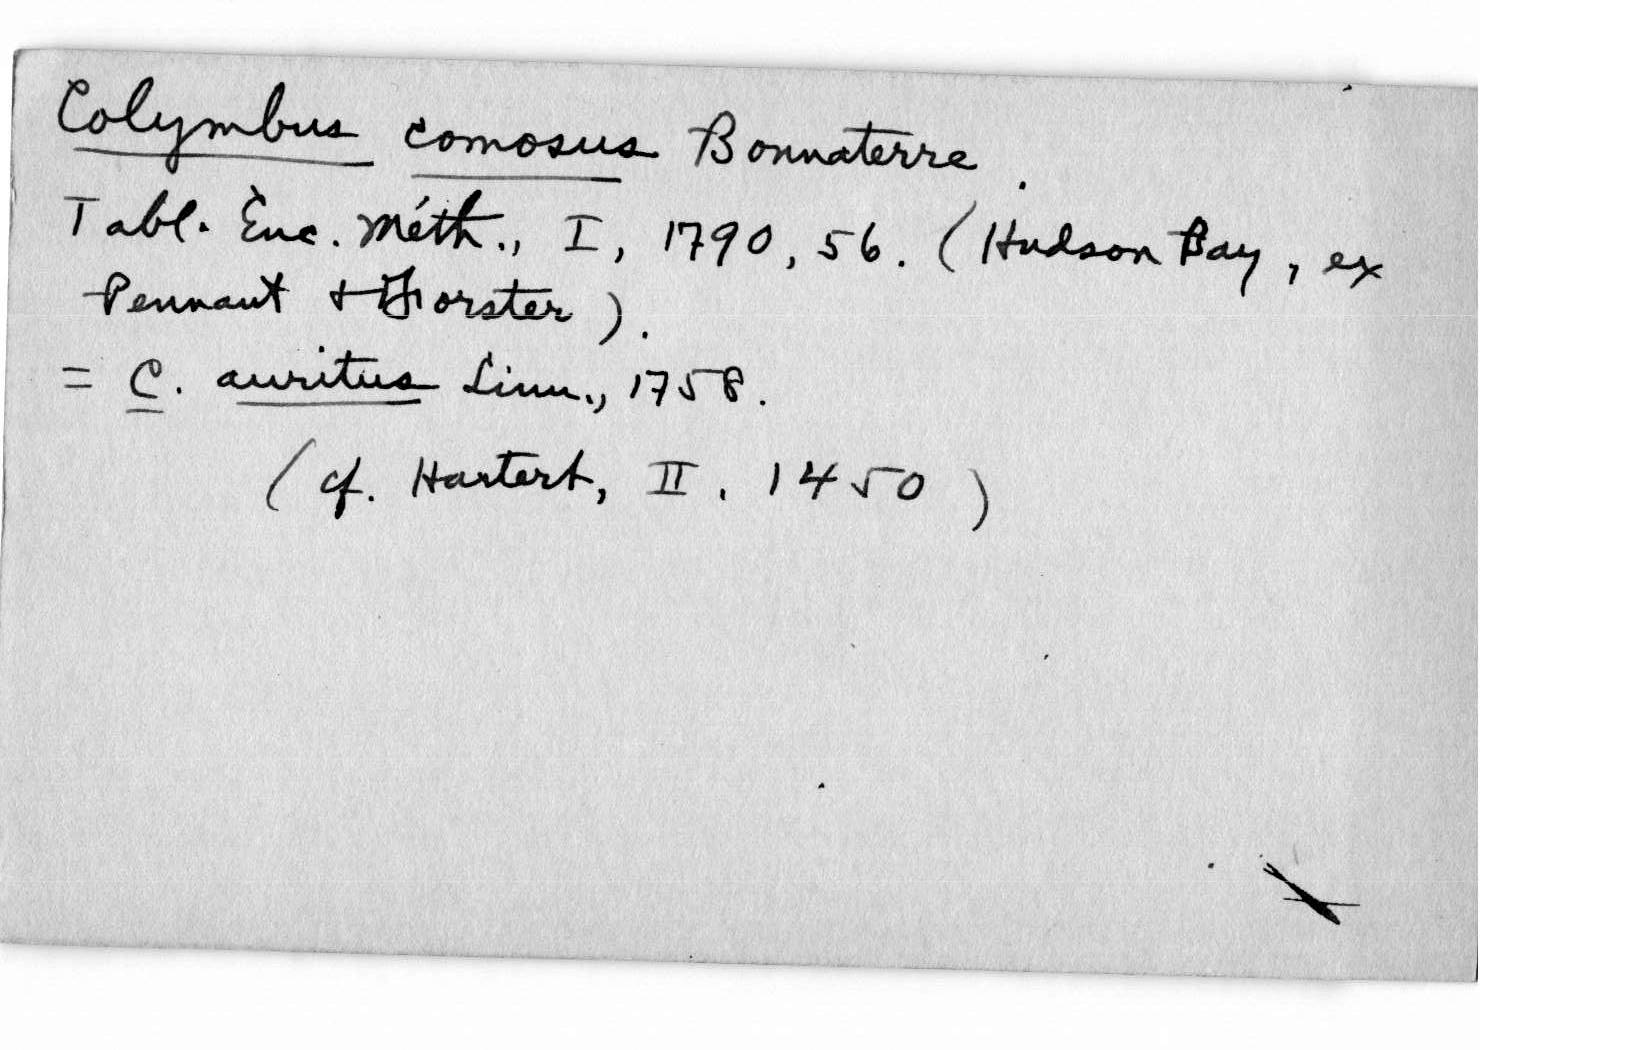 Colymbus comosus Bonnaterre.
Tabl. Enc. Méth., I, 1790, 56. (Hudson Bay, ex
Pennant + Forster).
= C. auritus Linn., 1758.
(cf. Hartert, II, 1450)